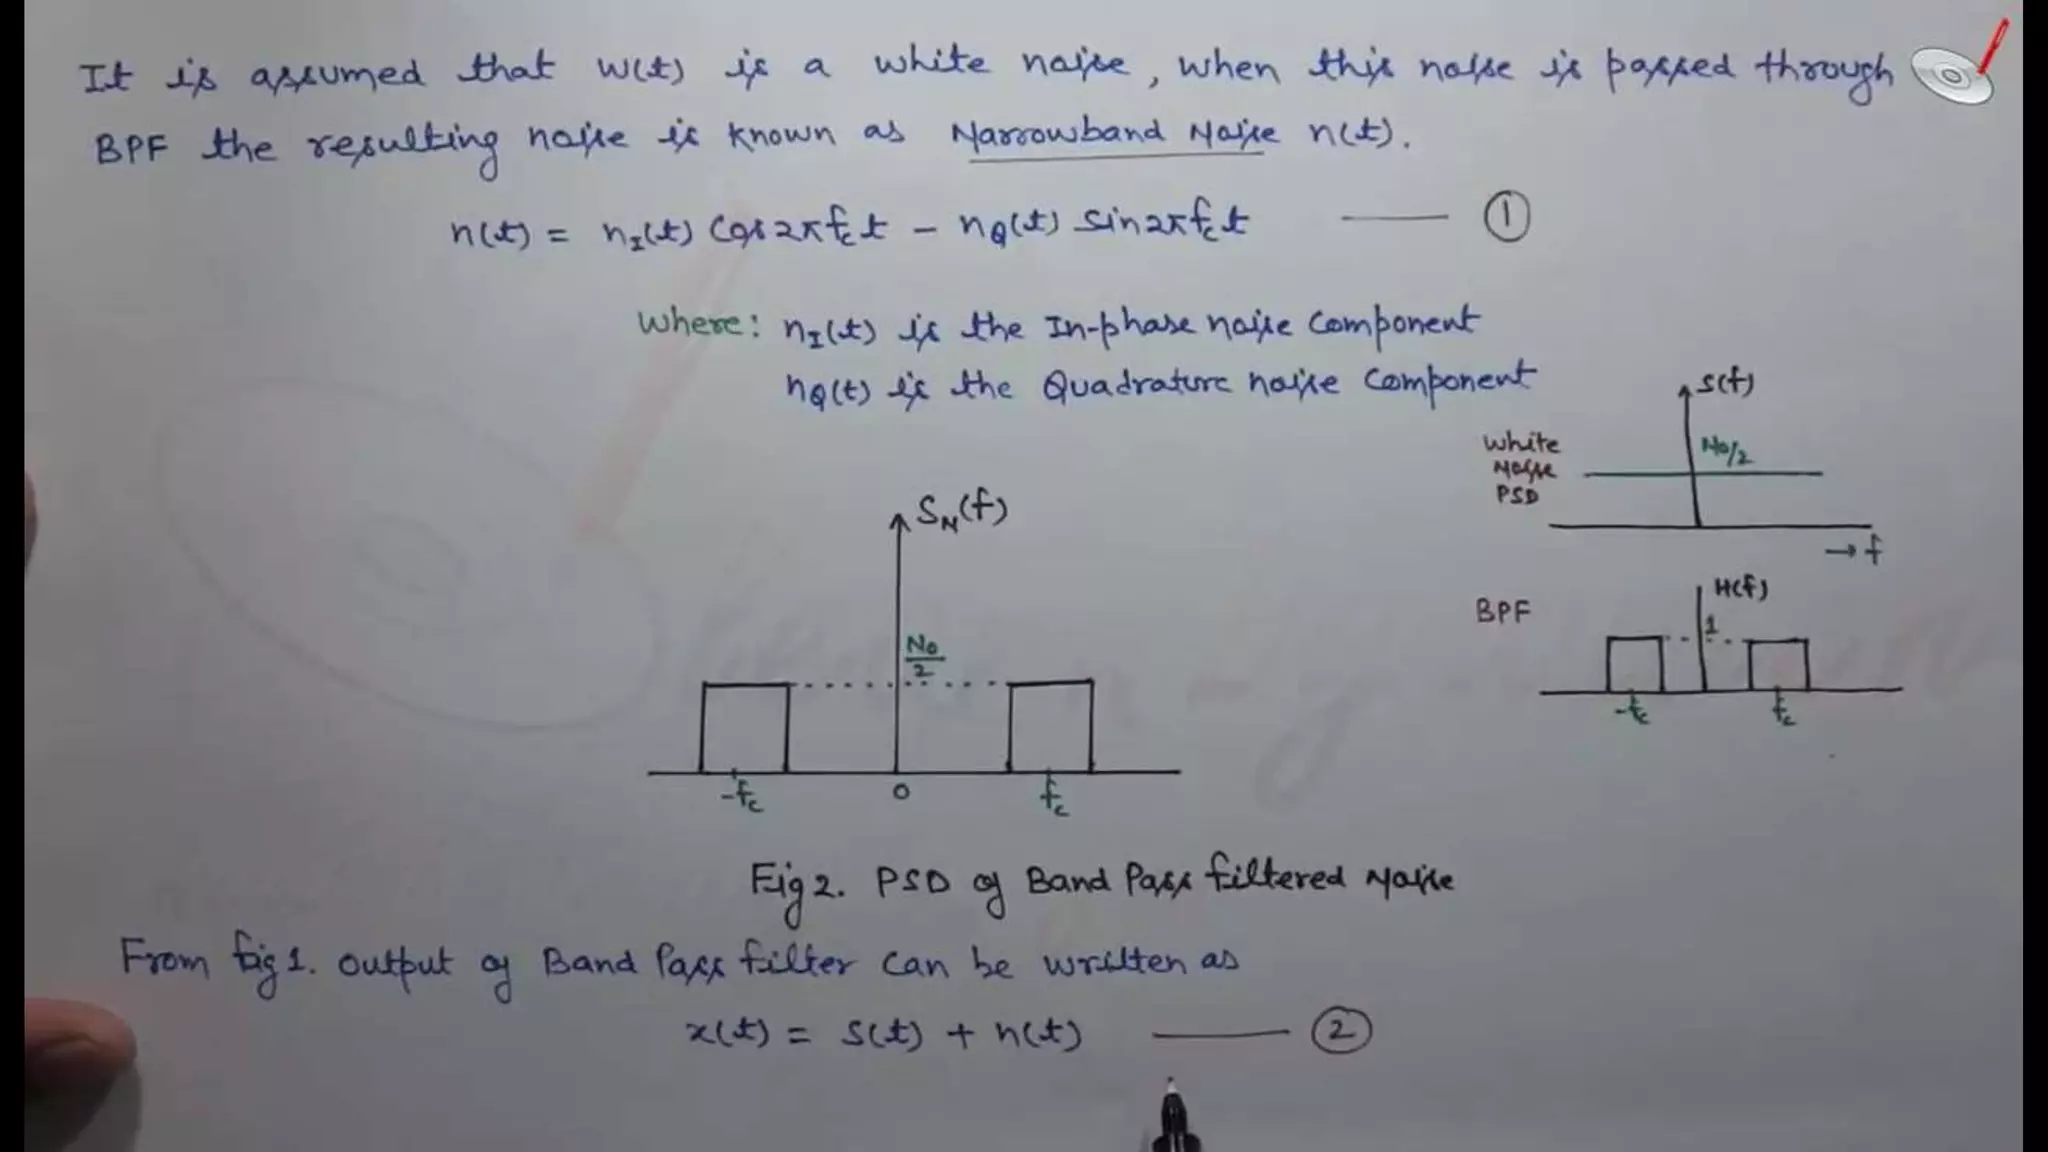 It is assumed that w(t) is a white noise, when this noise is passed through
BPF the resulting noise is known as Narrowband Noise n(t).
n(t) = n_I(t) Cos2πf_ct - n_Q(t) Sin2πf_ct ——— ①
Where: n_I(t) is the In-phase noise Component
n_Q(t) is the Quadrature noise Component
S(f)
White
Noise
PSD
N0/2
→ f
S_N(f)
N0/2
-f_c
0
f_c
BPF
H(f)
1
-f_c
f_c
Fig 2. PSD of Band Pass filtered Noise
From fig 1. Output of Band Pass filter Can be written as
x(t) = S(t) + n(t) ——— ②